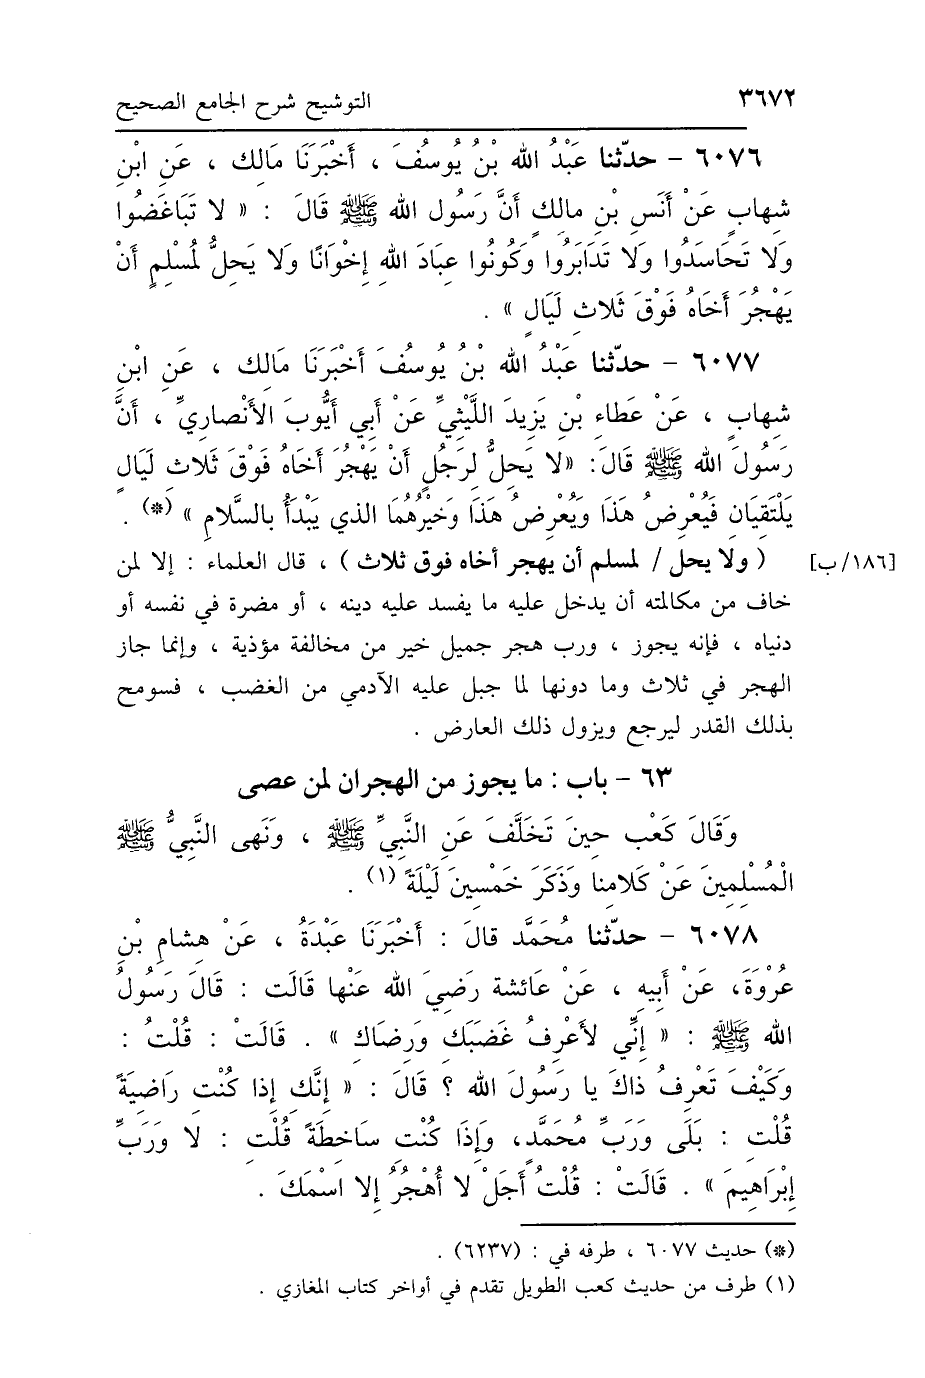 ٣٦٧٢ التوشيح شرح الجامع الصحيح
٦٠٧٦ - حدّثنا عَبْدُ الله بْنُ يُوسُفَ ، أَخْبَرَنَا مَالك ، عَنِ ابْنِ
شِهابٍ عَنْ أَنَسِ بْنِ مالكٍ أَنَّ رَسُول الله ﷺ قَالَ : « لا تَبَاغَضُوا
وَلا تَحَاسَدُوا وَلا تَدَابَرُوا وَكُونُوا عِبَادَ اللهِ إِخْوَانًا وَلا يَحِلُّ لمُسْلِمٍ أَنْ
يَهْجُرَ أَخَاهُ فَوْقَ ثَلاثِ لَيَالٍ » .
٦٠٧٧ - حدّثنا عَبْدُ الله بْنُ يُوسُفَ أَخْبَرَنَا مَالك ، عَنِ ابْنِ
شِهابٍ ، عَنْ عَطَاءِ بْنِ يَزِيدَ اللَّيْثِيِّ عَنْ أَبِي أَيُّوبَ الأَنْصارِيِّ ، أَنَّ
رَسُولَ الله ﷺ قَالَ: «لا يَحِلُّ لِرَجُلٍ أَنْ يَهْجُرَ أَخَاهُ فَوْقَ ثَلاثِ لَيَالٍ
يَلْتَقِيَانِ فَيُعْرِضُ هَذَا وَيُعْرِضُ هَذَا وَخَيْرُهُمَا الذي يَبْدَأُ بالسَّلامِ » (*) .
[١٨٦/ ب] ( ولا يحل / لمسلم أن يهجر أخاه فوق ثلاث ) ، قال العلماء : إلا لمن
خاف من مكالمته أن يدخل عليه ما يفسد عليه دينه ، أو مضرة في نفسه أو
دنياه ، فإنه يجوز ، ورب هجر جميل خير من مخالفة مؤذية ، وإنما جاز
الهجر في ثلاث وما دونها لما جبل عليه الآدمي من الغضب ، فسومح
بذلك القدر ليرجع ويزول ذلك العارض .
٦٣ - باب : ما يجوز من الهجران لمن عصى
وَقَالَ كَعْب حِينَ تَخَلَّفَ عَنِ النَّبِيِّ ﷺ ، وَنَهى النَّبِيُّ ﷺ
الْمُسْلِمِينَ عَنْ كَلامِنا وَذَكَرَ خَمْسِينَ لَيْلَةً (١) .
٦٠٧٨ - حدّثنا مُحَمَّد قالَ : أَخْبَرَنَا عَبْدَةُ ، عَنْ هِشامِ بْنِ
عُرْوَةَ، عَنْ أَبِيهِ ، عَنْ عَائشة رَضِيَ الله عَنْها قَالَت : قَالَ رَسُولُ
الله ﷺ : « إِنِّي لأَعْرِفُ غَضَبَكِ وَرِضَاكِ » . قَالَتْ : قُلْتُ :
وَكَيْفَ تَعْرِفُ ذاكَ يا رَسُولَ الله ؟ قَالَ : « إِنَّكِ إِذا كُنْتِ رَاضِيَةً
قُلْتِ : بَلَى وَرَبِّ مُحَمَّدٍ، وَإِذَا كُنْتِ سَاخِطَةً قُلْتِ : لا وَرَبِّ
إِبْرَاهِيمَ » . قَالَتْ : قُلْتُ أَجَلْ لا أُهْجُرُ إلا اسْمَكَ .
(*) حديث ٦٠٧٧ ، طرفه في : (٦٢٣٧) .
(١) طرف من حديث كعب الطويل تقدم في أواخر كتاب المغازي .